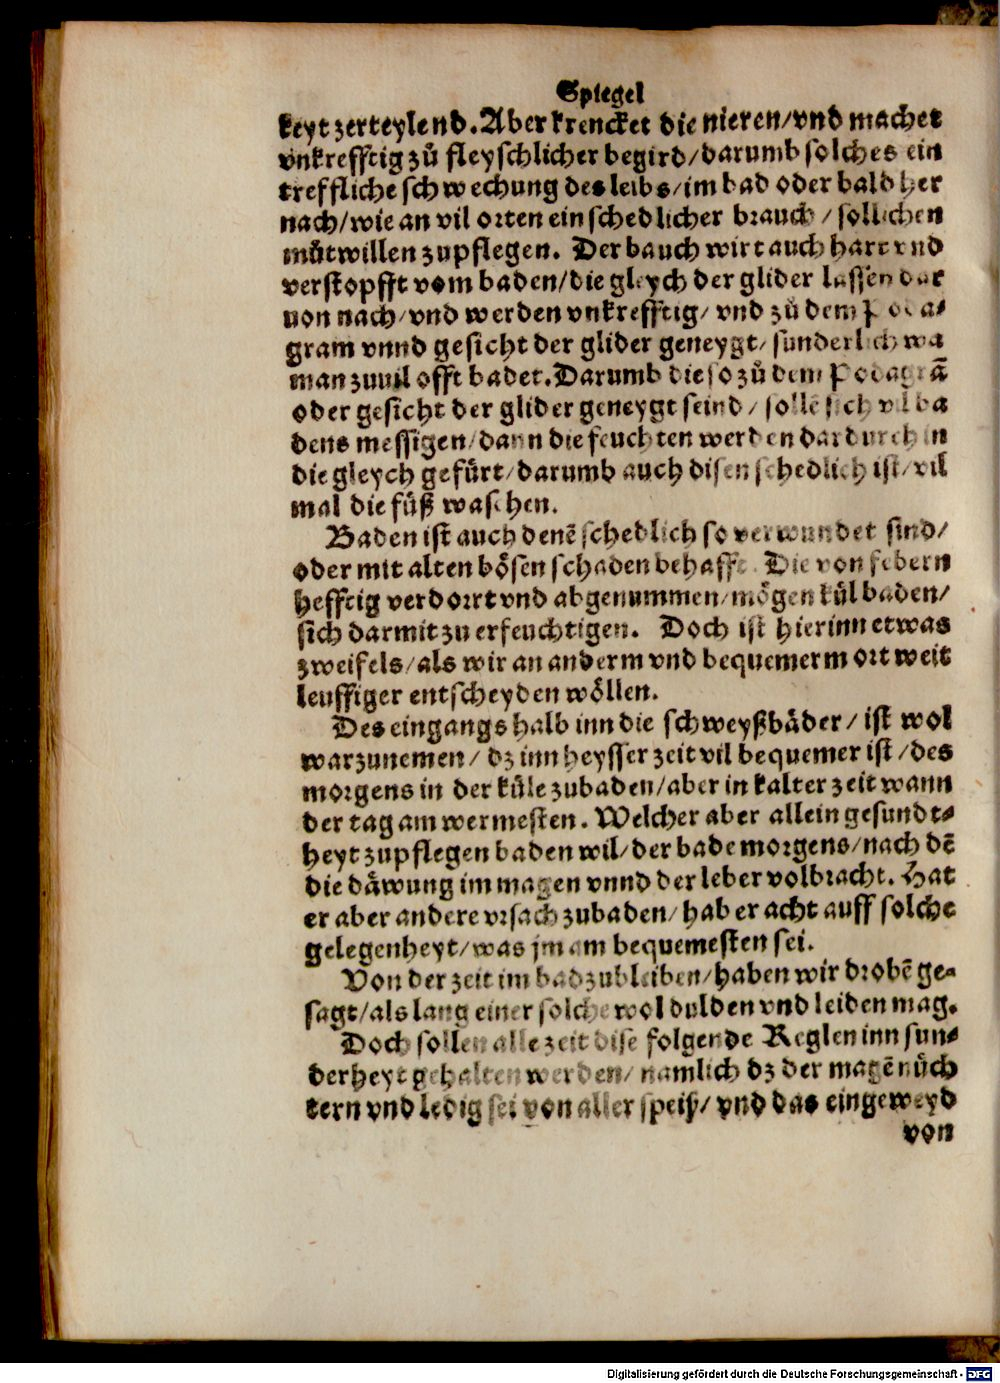 Spiegel
keyt zerteylend. Aber krencket die nieren/ vnd machet
vnkrefftig zů fleyschlicher begird/ darumb solches ein
treffliche schwechung des leibs/ im bad oder bald her
nach/ wie an vil orten ein schedlicher brauch/ sollichen
můtwillen zupflegen. Der bauch wirt auch hart vnd
verstopfft vom baden/ die gleych der glider lassen dar
uon nach/ vnd werden vnkrefftig/ vnd zů dem Poda-
gram vnnd gesicht der glider geneygt/ sunderlich wa
man zuuil offt badet. Darumb die so zů dem Podagrã
oder gesicht der glider geneygt seind/ sollẽ sich vil ba
dens messigen/ dann die feuchten werden dardurch in
die gleych gefürt/ darumb auch disen schedlich ist/ vil
mal die füß waschen.
Baden ist auch denẽ schedlich so verwundet sind/
oder mit alten bösen schaden behafft. Die von febern
hefftig verdorrt vnd abgenummen/ mögen kül baden/
sich darmit zu erfeuchtigen. Doch ist hierinn etwas
zweifels/ als wir an anderm vnd bequemerm ort weit
leuffiger entscheyden wöllen.
Des eingangs halb inn die schweyßbäder/ ist wol
warzunemen/ dz inn heysser zeit vil bequemer ist/ des
morgens in der küle zubaden/ aber in kalter zeit wann
der tag am wermesten. Welcher aber allein gesundt-
heyt zupflegen baden wil/ der bade morgens/ nach dẽ
die däwung im magen vnnd der leber volbracht. Hat
er aber andere vrsach zubaden/ hab er acht auff solche
gelegenheyt/ was jm am bequemesten sei.
Von der zeit im bad zubleiben/ haben wir drobẽ ge-
sagt/ als lang einer solche wol dulden vnd leiden mag.
Doch sollen alle zeit dise folgende Reglen inn sun-
derheyt gehalten werden/ namlich dz der magẽ nüch
tern vnd ledig sei von aller speiß/ vnd das eingeweyd
von
Digitalisierung gefördert durch die Deutsche Forschungsgemeinschaft - DFG